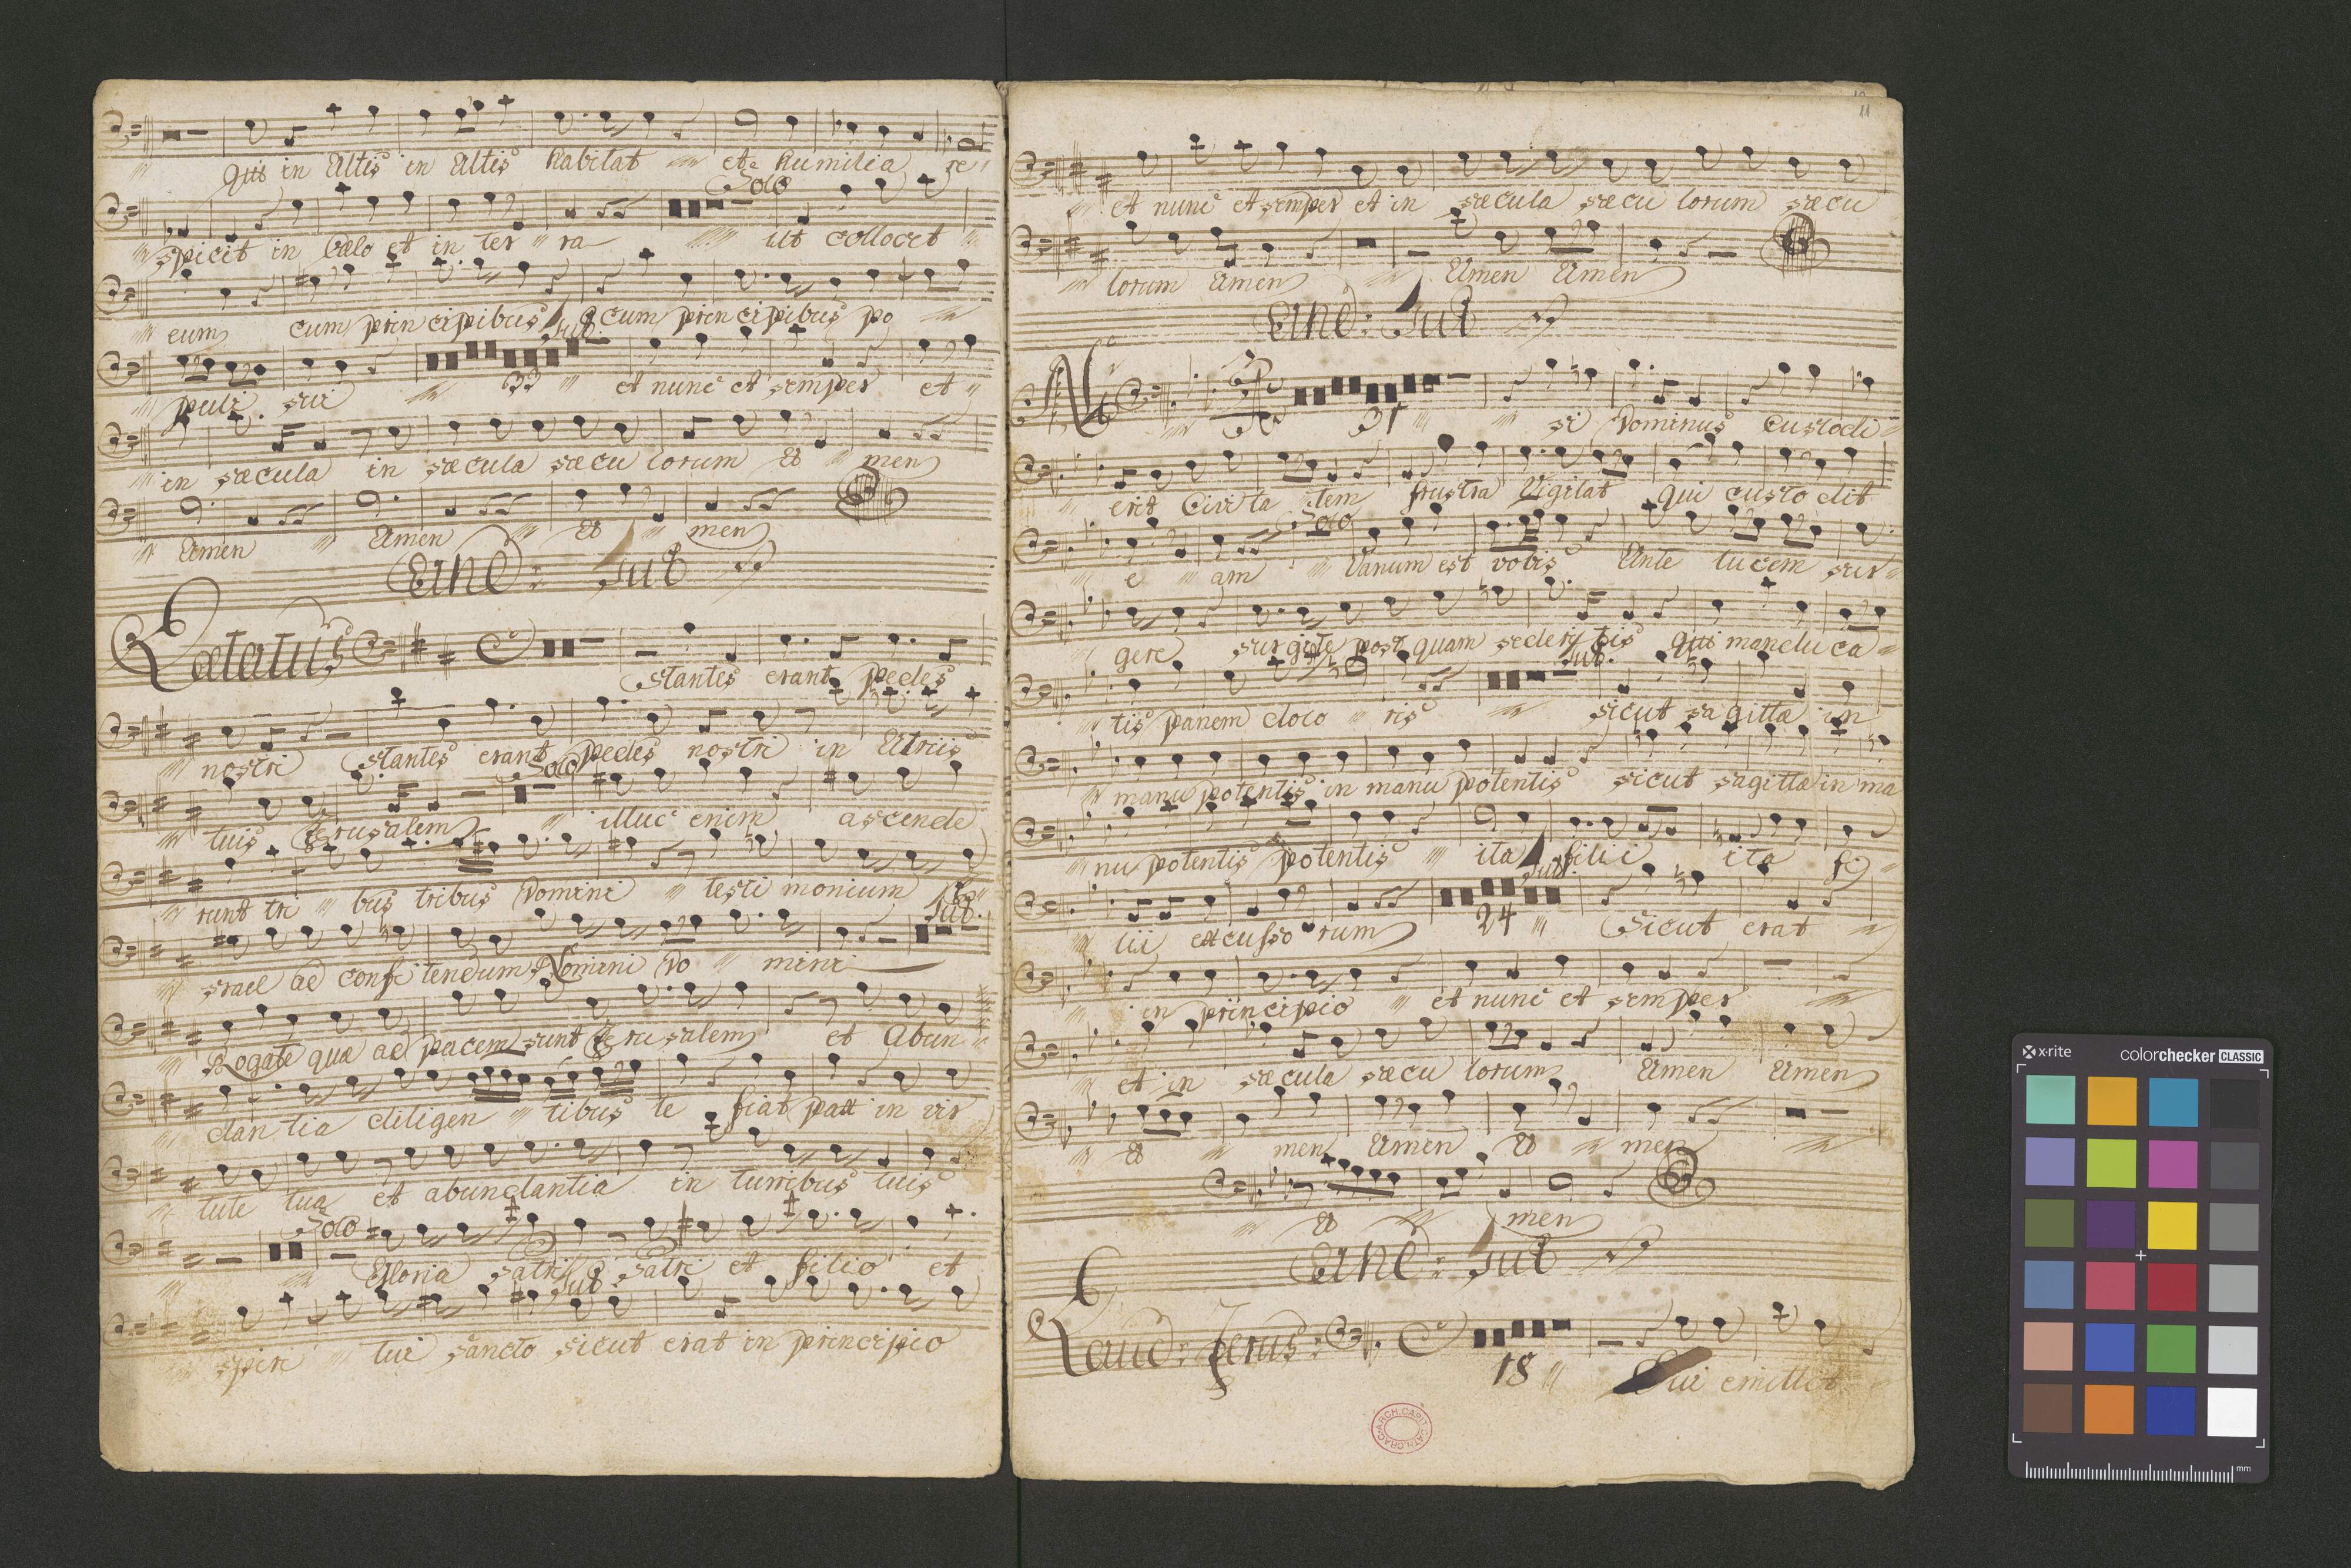 qui in Altis in Altis habitat et humilia re
Solo
spicit in Cælo et in ter ra ut collocet
eum cum principibus cum principibus po
Sub.
puli sui 33 et nunc et semper et
in sæcula in sæcula sæcu lorum A men
Amen Amen A men
Ant: Sub
Lætatus C Stantes erant pedes
nostri Stantes erant pedes nostri in Atriis
Solo
tuis Jerusalem illuc enim ascende
runt tri bus tribus Domini testi monium I
Sub.
srael ad confitendum Nomini Do mini
Rogate quæ ad pacem sunt Jerusalem et Abun
dantia diligen tibus te fiat pax in vir
tute tua et abundantia in turribus tuis
Solo
Gloria Patri Patri et filio et
Sub
spiri tui sancto sicut erat in principio
11
et nunc et semper et in sæcula sæcu lorum sæcu
lorum Amen Amen Amen
Ant: Sub
31 si Dominus custodi
erit Civita tem frustra Vigilat qui custodit
Solo
e am Vanum est vobis Ante lucem sur
gere surgite post quam sederitis qui manduca
Sub.
tis panem dolo ris sicut sagittæ in
manu potentis in manu potentis sicut sagittæ in ma
nu potentis potentis ita filii ita fi
Sub.
lii excusso rum 24 Sicut erat
in principio et nunc et semper
et in sæcula sæcu lorum Amen Amen
A men Amen A men
A men
Ant: Sub
Laud: Jerus: C 18 Qui emittit
ARCH. CAPIT. CATH. CRAC.
x-rite colorchecker CLASSIC
mm